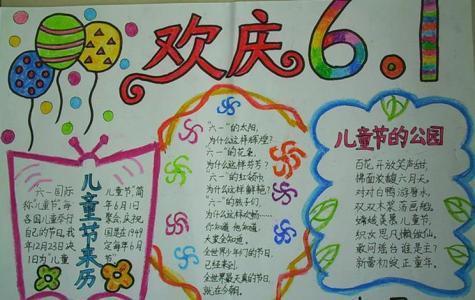 欢庆6.1
儿童节来历
“六一国际儿童节”简
称“儿童节”,每年6月1日
各国儿童举行聚会,庆祝
自己的节日,我国是在1949
年12月23日决定每年6月
1日为“儿童节”
“六一”的太阳,
为什么这样辉煌?
“六一”的花朵,
为什么这样芬芳?
“六一”的红领巾
为什么这样鲜艳?
“六一”的孩子们,
为什么这样欢畅……
你知道 他知道,
大家全知道,
全世界少年们的节日,
已经来到,
全世界最美的节日,
就在今朝。
儿童节的公园
百花齐放笑声甜,
面欢六月天。
对对白鸭游碧水,
双双木桨荡画船。
羡慕儿童节,
织女思凡懒做仙。
敢问瑶台谁是主?
新蕾初绽正童年。